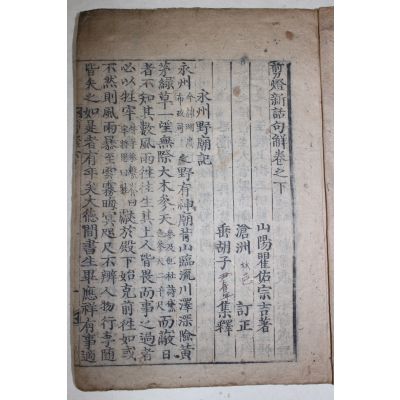 剪燈新話句解卷之下
山陽瞿佑宗吉著
滄洲 訂正
垂胡子 集釋
永州野廟記
永州之野有神廟背山臨流川澤深險黃
茅綠草一望無際大木參天而蔽日
者不知其數風雨往往生其上人皆畏而事之過者
必以牲牢獻於殿下始克前往如或
不然則風雨暴至雲霧晦冥咫尺不辨人物行李隨
皆失之如是者有年矣大德間書生畢應祥有事適